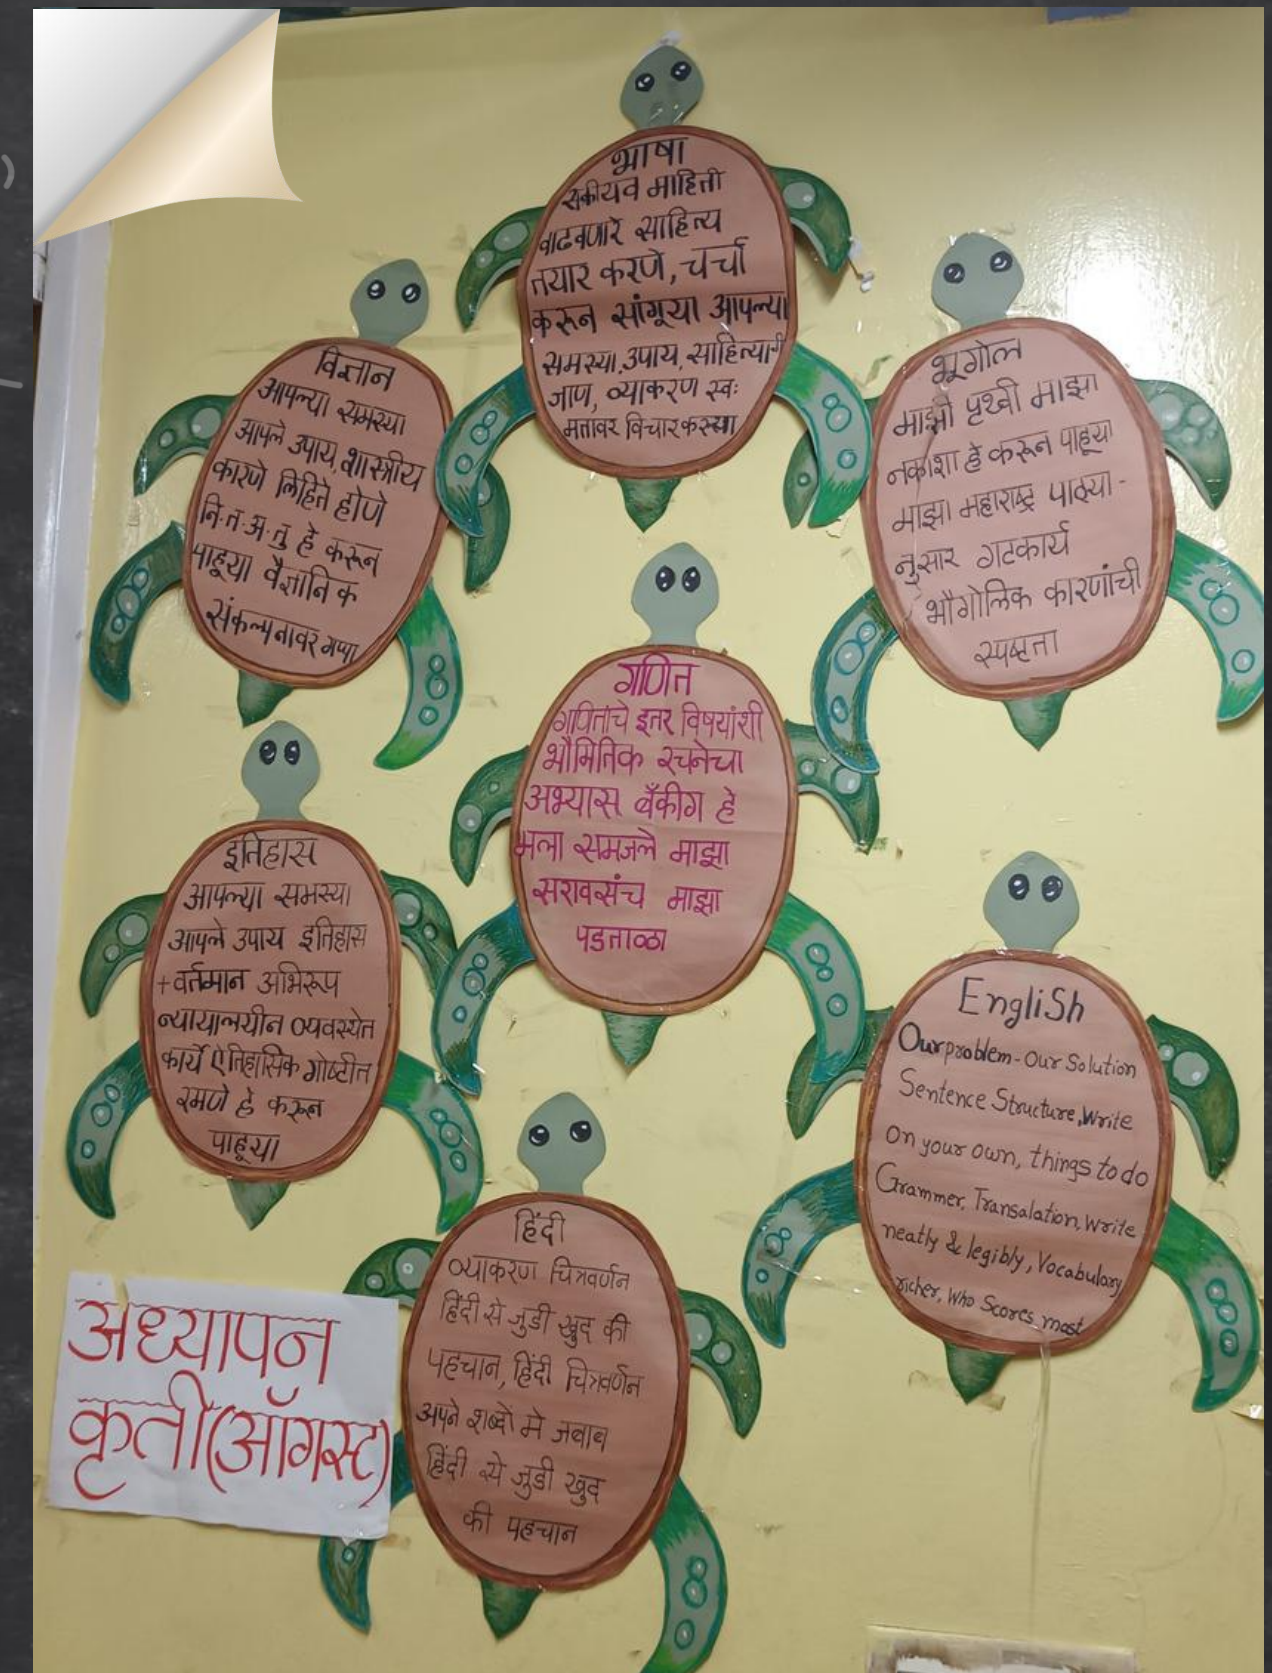 भाषा
सकीयव माहिती
वाढवणारे साहित्य
तयार करणे, चर्चा
करून सांगूया आपल्या
समस्या, उपाय, साहित्याची
जाण, व्याकरण स्वः
मतावर विचार करूया
विज्ञान
आपल्या समस्या
आपले उपाय, शास्त्रीय
कारणे लिहिते होणे
नि.त.अ.तु हे करून
पाहूया वैज्ञानिक
संकल्पनावर गप्पा
भूगोल
माझी पृथ्वी माझा
नकाशा हे करून पाहूया
माझा महाराष्ट्र पाठ्या-
नुसार गटकार्य
भौगोलिक कारणांची
स्पष्टता
गणित
गणिताचे इतर विषयांशी
भौमितिक रचनेचा
अभ्यास बँकीग हे
मला समजले माझा
सरावसंच माझा
पडताळा
इतिहास
आपल्या समस्या
आपले उपाय इतिहास
+वर्तमान अभिरूप
न्यायालयीन व्यवस्थेत
कार्ये ऐतिहासिक गोष्टीत
रमणे हे करून
पाहूया
English
Our problem - Our Solution
Sentence Structure, Write
on your own, things to do
Grammer, Transalation, Write
neatly & legibly, Vocabulary
richer, Who Scores most
हिंदी
व्याकरण चित्रवर्णन
हिंदी से जुडी खुद की
पहचान, हिंदी चित्रवर्णन
अपने शब्दों मे जवाब
हिंदी से जुडी खुद
की पहचान
अध्यापन
कृती(ऑगस्ट)